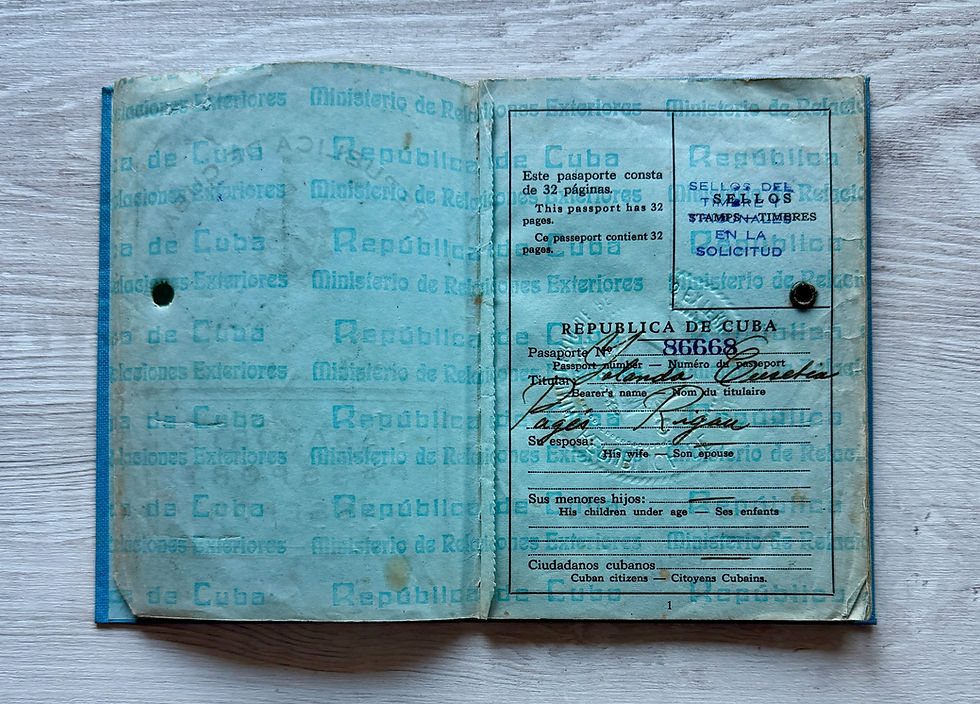 Ministerio de Relaciones Exteriores
República de Cuba
Este pasaporte consta
de 32 páginas.
This passport has 32
pages.
Ce passeport contient 32
pages.
SELLOS
STAMPS—TIMBRES
SELLOS DEL
TIMBRE Y
EN LA
SOLICITUD
REPUBLICA DE CUBA
Pasaporte Nº 86668
Passport number — Numéro du passeport
Titular: Yolanda Eusebia
Bearer's name — Nom du titulaire
Pagés Rigau
Su esposa:
His wife — Son épouse
Sus menores hijos:
His children under age — Ses enfants
Ciudadanos cubanos
Cuban citizens — Citoyens Cubains.
1